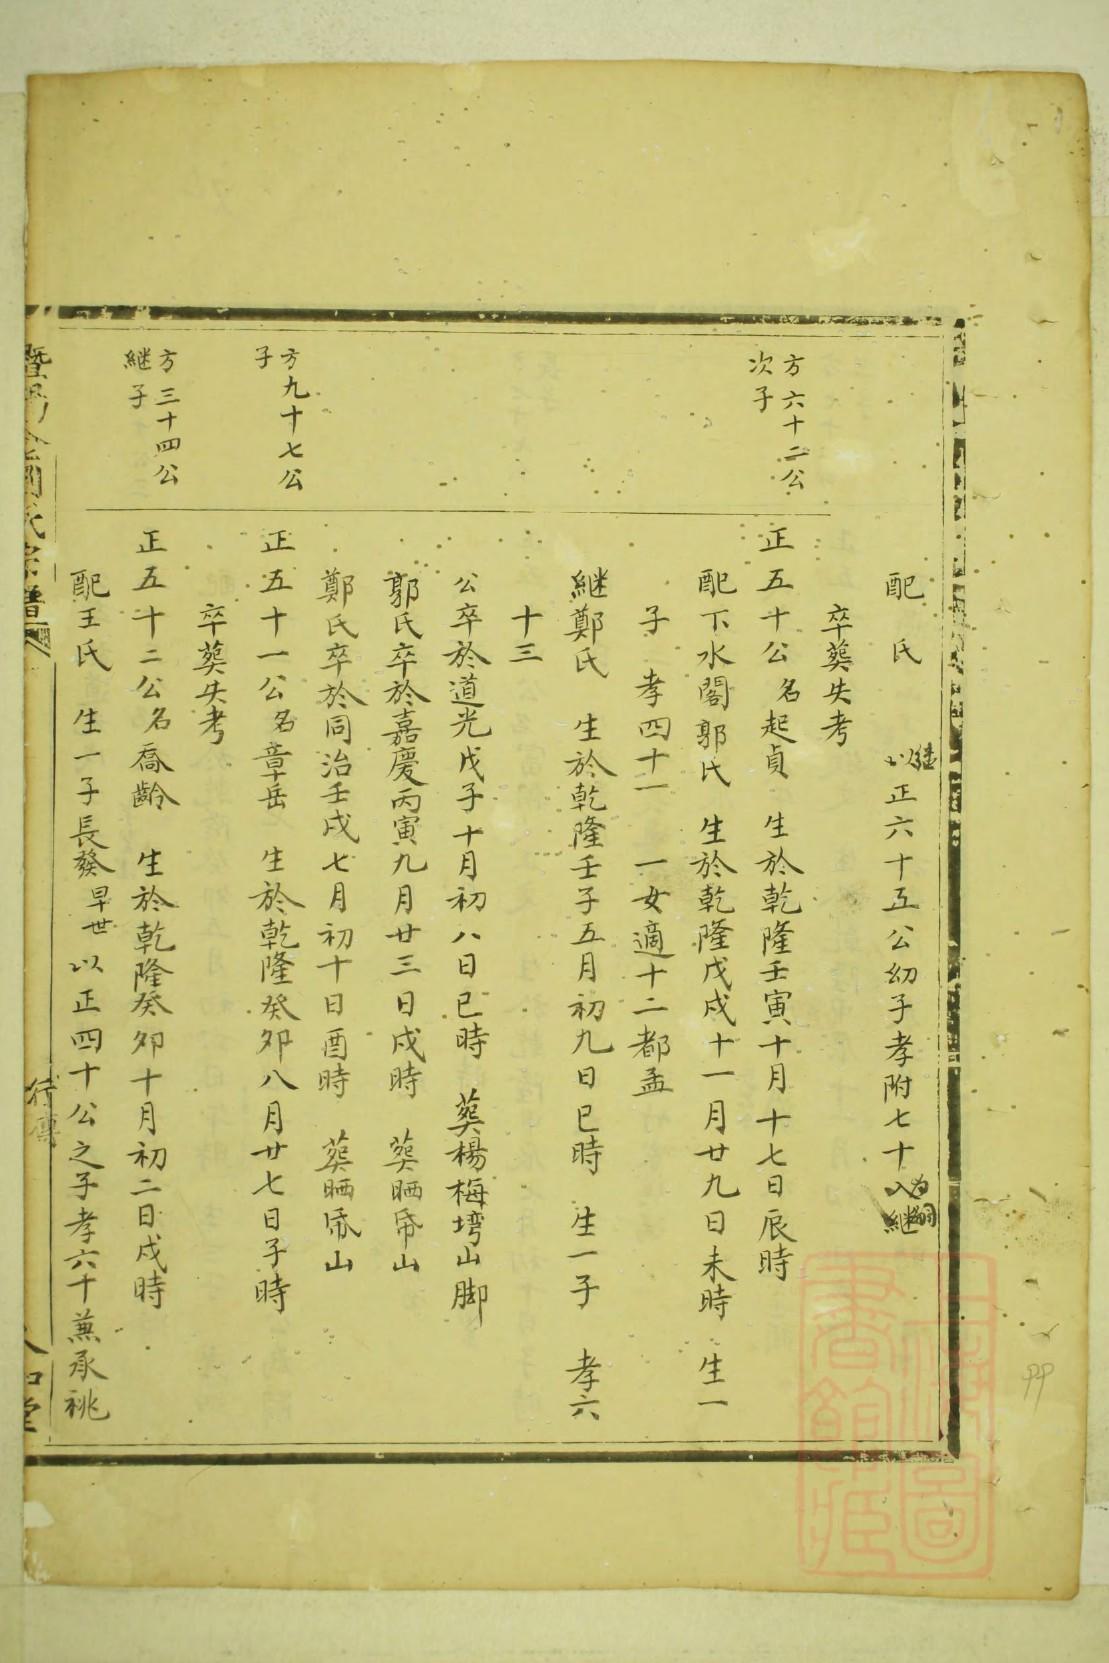 配 氏 繼以正六十五公幼子孝附七十入繼為嗣
卒葬失考
方六十二公
次子
正五十公名起貞 生於乾隆壬寅十月十七日辰時
配下水閣郭氏 生於乾隆戊戌十一月廿九日未時 生一
子 孝四十一 一女適十二都孟
継鄭氏 生於乾隆壬子五月初九日巳時 生一子 孝六
十三
公卒於道光戊子十月初八日巳時 葬楊梅塆山脚
郭氏卒於嘉慶丙寅九月廿三日戌時 葬晒帋山
鄭氏卒於同治壬戌七月初十日酉時 葬晒帋山
方九十七公
子
正五十一公名章岳 生於乾隆癸卯八月廿七日子時
卒葬失考
方三十四公
継子
正五十二公名喬齡 生於乾隆癸卯十月初二日戌時
配王氏 生一子長發早世以正四十公之子孝六十兼承祧
氏宗譜
行傳
堂
上海圖書館藏
99